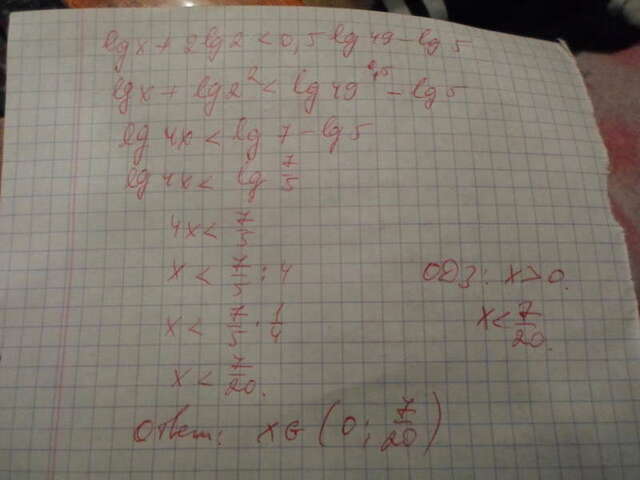 lg x + 2 lg 2 < 0,5 lg 49 - lg 5
lg x + lg 2² < lg 49^0,5 - lg 5
lg 4x < lg 7 - lg 5
lg 4x < lg 7/5
4x < 7/5
x < 7/5 : 4
x < 7/5 · 1/4
x < 7/20.
ОДЗ: x > 0.
x < 7/20.
Ответ: x ∈ (0; 7/20)